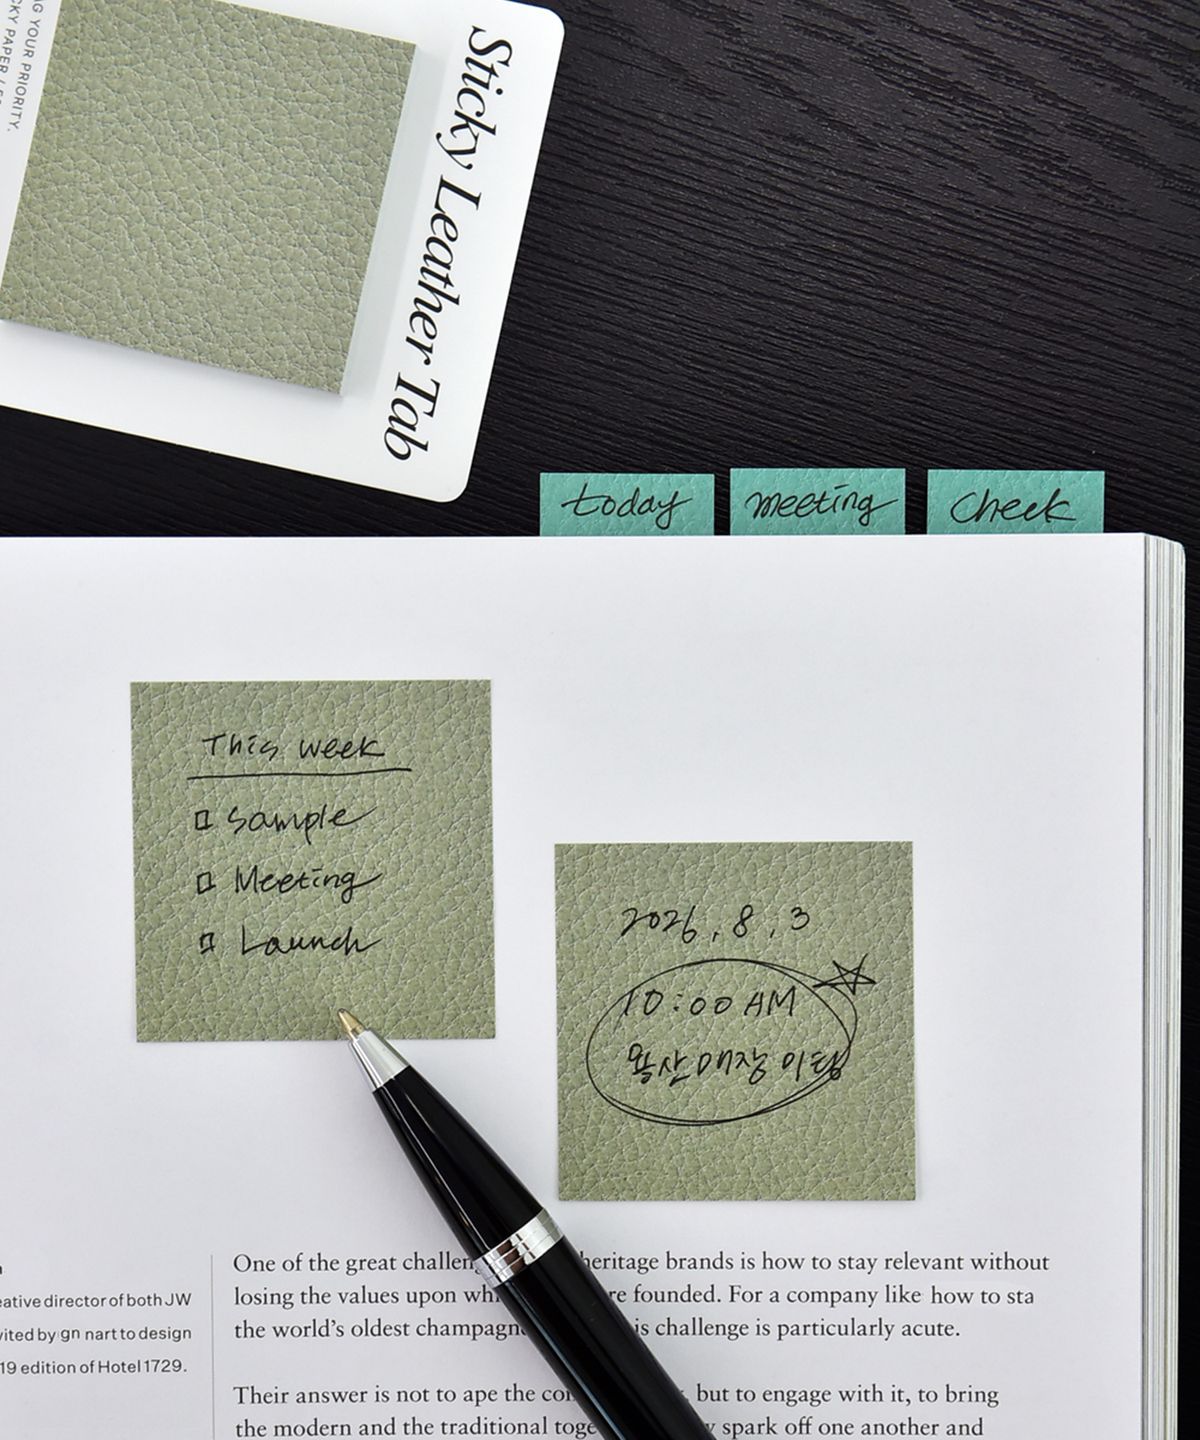 NG YOUR PRIORITY.
CKY PAPER /
Sticky Leather Tab
today
meeting
Check
This week
Sample
Meeting
Launch
2026. 8. 3
10:00 AM
용산매장 미팅
One of the great challen heritage brands is how to stay relevant without
losing the values upon wh re founded. For a company like how to sta
the world's oldest champagn is challenge is particularly acute.
Their answer is not to ape the co , but to engage with it, to bring
the modern and the traditional toge y spark off one another and
eative director of both JW
vited by gn nart to design
19 edition of Hotel 1729.